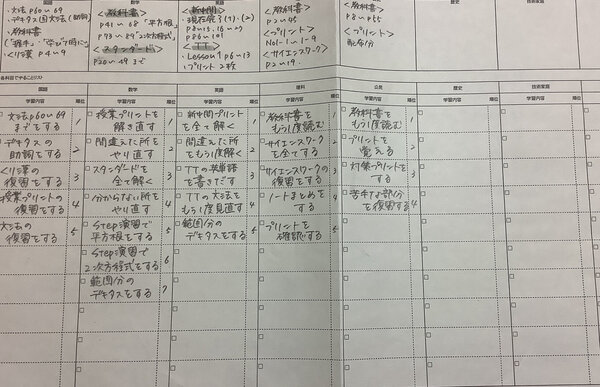 国語
数学
英語
・文法 p60〜69
・デキタス(国文法)(助詞)
・教科書
・くり漢 p4〜9
<教科書>
p41〜68「平方根」
p73〜89「2次方程式」
<スタンダード>
p20〜49 まで
<新中問>
・現在完了(1)・(2)
p8〜13.16〜27
p86〜101
<TT>
・Lesson1 p6〜13
・プリント2枚
<教科書>
p2〜45
<プリント>
No1-1〜1-9
<サイエンスワーク>
p2〜19.
<教科書>
p8〜55
<プリント>
配布分
各科目でやることリスト
国語
数学
英語
理科
公民
歴史
技術家庭
学習内容 順位
学習内容 順位
学習内容 順位
学習内容 順位
学習内容 順位
学習内容 順位
学習内容 順位
文法 p60〜69
までをする 1
デキタスの
助詞をする 2
くり漢の
復習をする 3
授業プリントの
復習をする 4
文法の
復習をする 5
授業プリントを
解き直す 1
間違えた所を
やり直す 2
スタンダードを
全て解く 3
分からない所を
やり直す 4
Step演習で
平方根をする 5
Step演習で
2次方程式をする 6
範囲分の
デキタスをする 7
新中問プリント
を全て解く 1
間違えた所を
もう1度解く 2
TTの英単語
を書きだす 3
TTの文法を
もう1度見直す 4
範囲分の
デキタスをする 5
教科書を
もう1度読む 1
サイエンスワーク
を全てする 2
サイエンスワークの
復習をする 3
ノートまとめを
する 4
プリントを
確認する 5
教科書を
もう1度読む 1
プリントを
覚える 2
対策プリントを
する 3
苦手な部分
を復習する 4